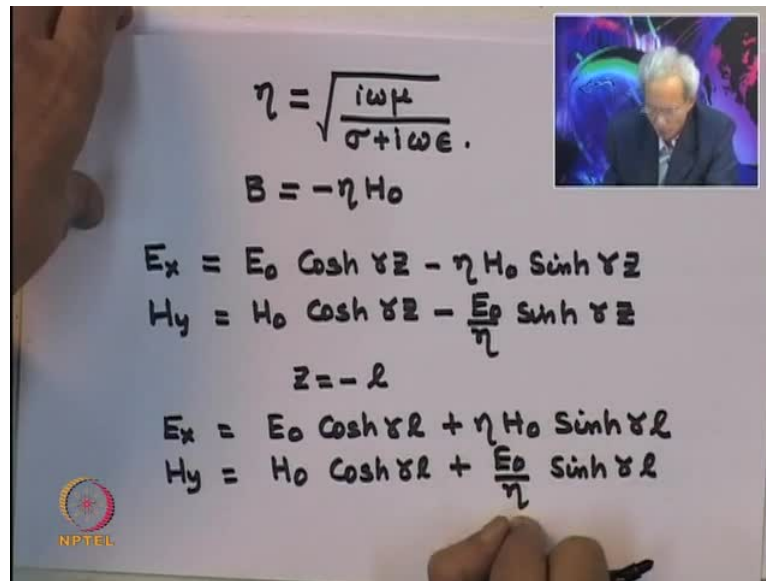 η = √(iωμ / (σ + iωϵ)).
B = -ηH₀
Eₓ = E₀ Cosh γz - ηH₀ Sinh γz
Hy = H₀ Cosh γz - E₀/η Sinh γz
z = -l
Eₓ = E₀ Cosh γl + ηH₀ Sinh γl
Hy = H₀ Cosh γl + E₀/η Sinh γl
NPTEL